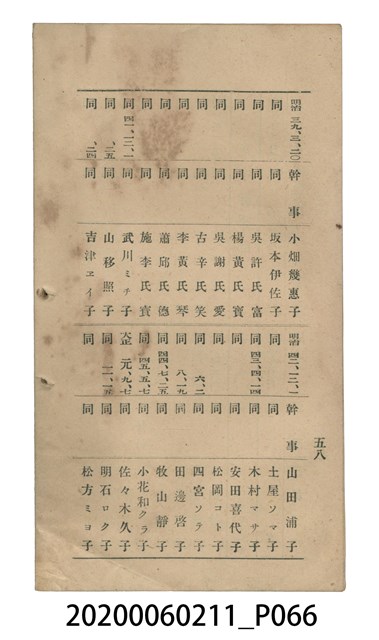 五八
明治 三九、三、二〇 幹事 小畑幾惠子
同 同 坂本伊佐子
同 同 吳許氏富
同 同 楊黃氏寶
同 同 吳謝氏愛
同 同 古辛氏笑
同 同 李黃氏琴
同 同 蕭邱氏德
同 同 施李氏寶
同 四一、一二、一 同 武川ミチ子
同 、一五 同 山移照子
同 、二四 同 吉津ヱイ子
明治 四二、三、一 幹事 山田浦子
同 同 土屋ソマ子
同 四三、四、一四 同 木村マサ子
同 同 安田喜代子
同 同 松岡コト子
同 六、二 同 四宮ソラ子
同 八、一九 同 田邊啓子
同 四四、七、二五 同 牧山靜子
同 四五、五、七 同 小花和クラ子
大正 元、九、七 同 佐々木久子
同 一二、一五 同 明石ロク子
同 同 松方ミヨ子
20200060211_P066